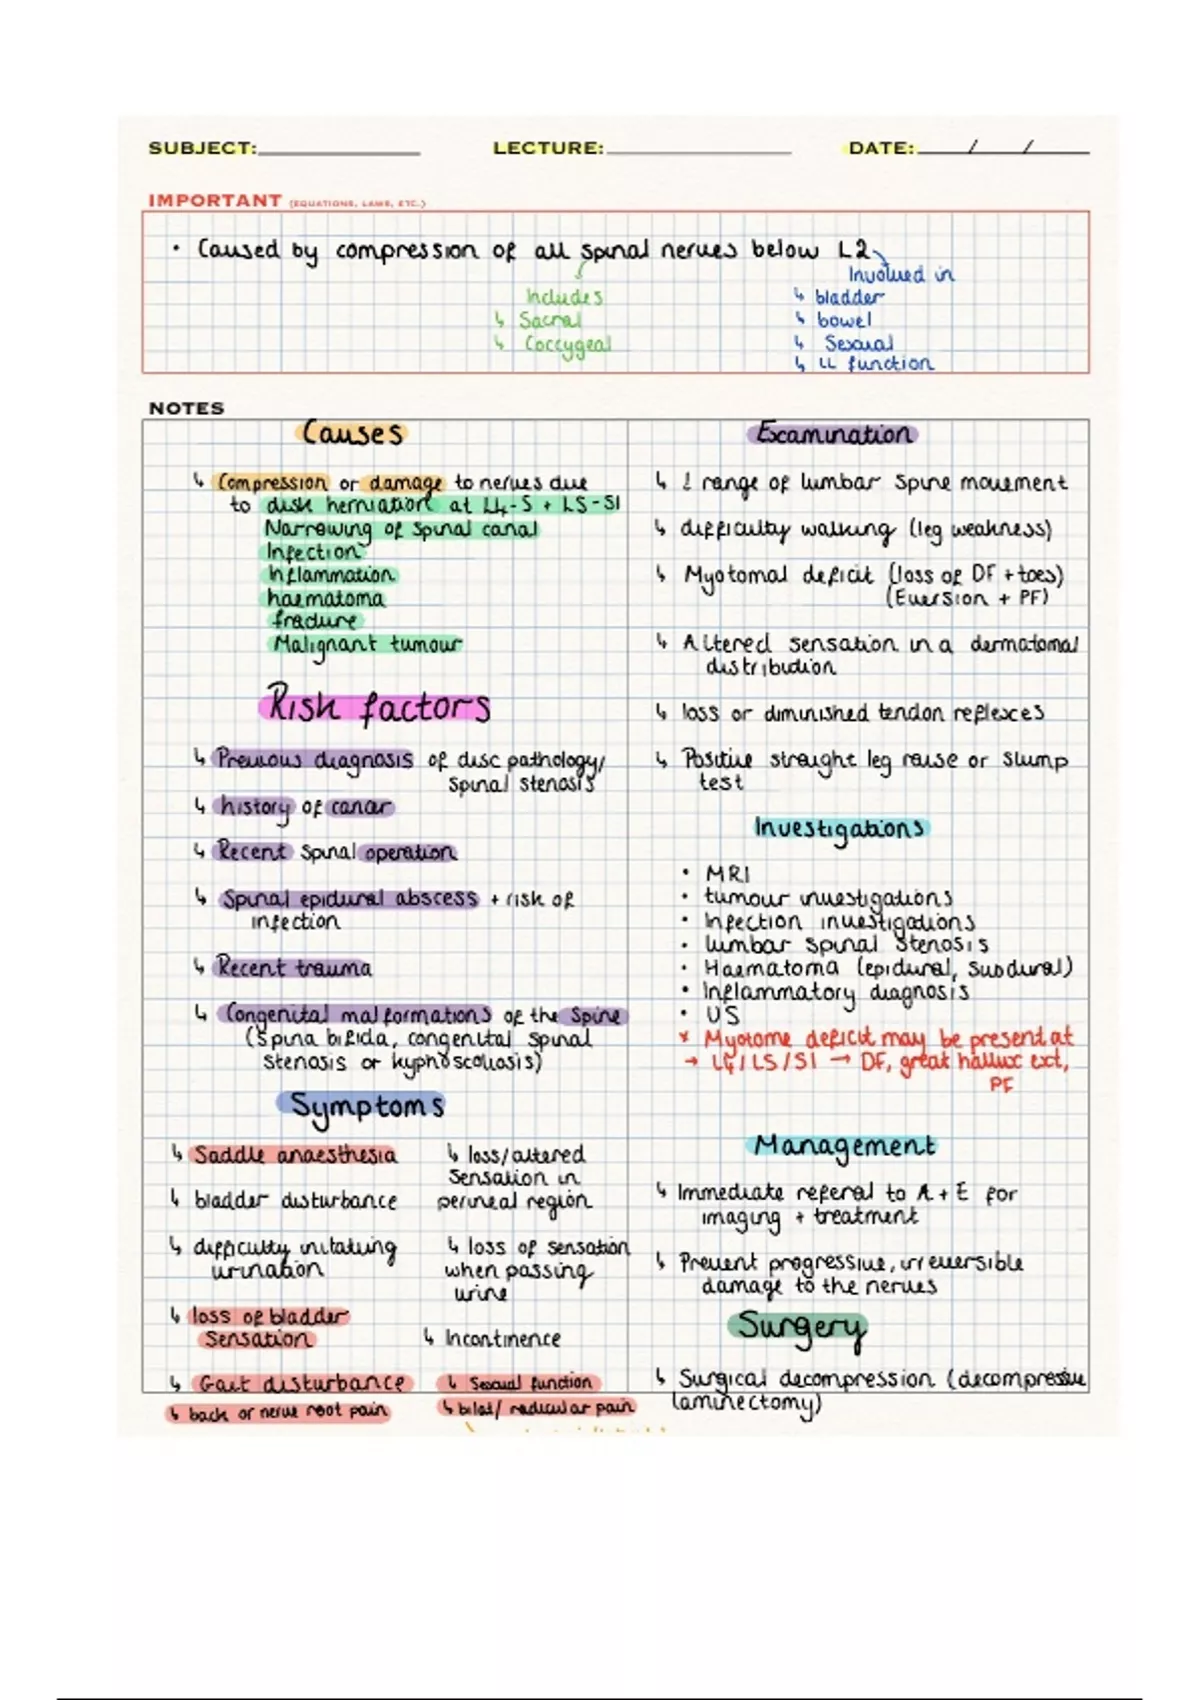 SUBJECT:
LECTURE:
DATE: / /
IMPORTANT (EQUATIONS, LAWS, ETC.)
• Caused by compression of all spinal nerves below L2
Includes
↳ Sacral
↳ Coccygeal
Involved in
↳ bladder
↳ bowel
↳ Sexual
↳ LL function
NOTES
Causes
↳ Compression or damage to nerves due
to disk herniation at L4-5 + L5-S1
Narrowing of spinal canal
Infection
Inflammation
haematoma
fracture
Malignant tumour
Risk factors
↳ Previous diagnosis of disc pathology/
Spinal stenosis
↳ history of cancer
↳ Recent spinal operation
↳ Spinal epidural abscess + risk of
infection
↳ Recent trauma
↳ Congenital malformations of the Spine
(Spina bifida, congenital spinal
stenosis or kyphoscoliosis)
Symptoms
↳ Saddle anaesthesia
↳ bladder disturbance
↳ difficulty initating
urination
↳ loss of bladder
Sensation
↳ Gait disturbance
↳ back or nerve root pain
↳ loss/altered
Sensation in
perineal region
↳ loss of sensation
when passing
urine
↳ Incontinence
↳ Sexual function
↳ bilat/ radicular pain
Examination
↳ range of lumbar spine movement
↳ difficulty walking (leg weakness)
↳ Myotomal deficit (loss of DF + toes)
(Eversion + PF)
↳ Altered sensation in a dermatomal
distribution
↳ loss or diminished tendon reflexes
↳ Positive straight leg raise or slump
test
Investigations
• MRI
• tumour investigations
• Infection investigations
• lumbar spinal stenosis
• Haematoma (epidural, subdural)
• Inflammatory diagnosis
• US
* Myotome deficit may be present at
→ L4/L5/S1 → DF, great hallux ext,
PF
Management
↳ Immediate referal to A + E for
imaging + treatment
↳ Prevent progressive, irreversible
damage to the nerves
Surgery
↳ Surgical decompression (decompressive
laminectomy)